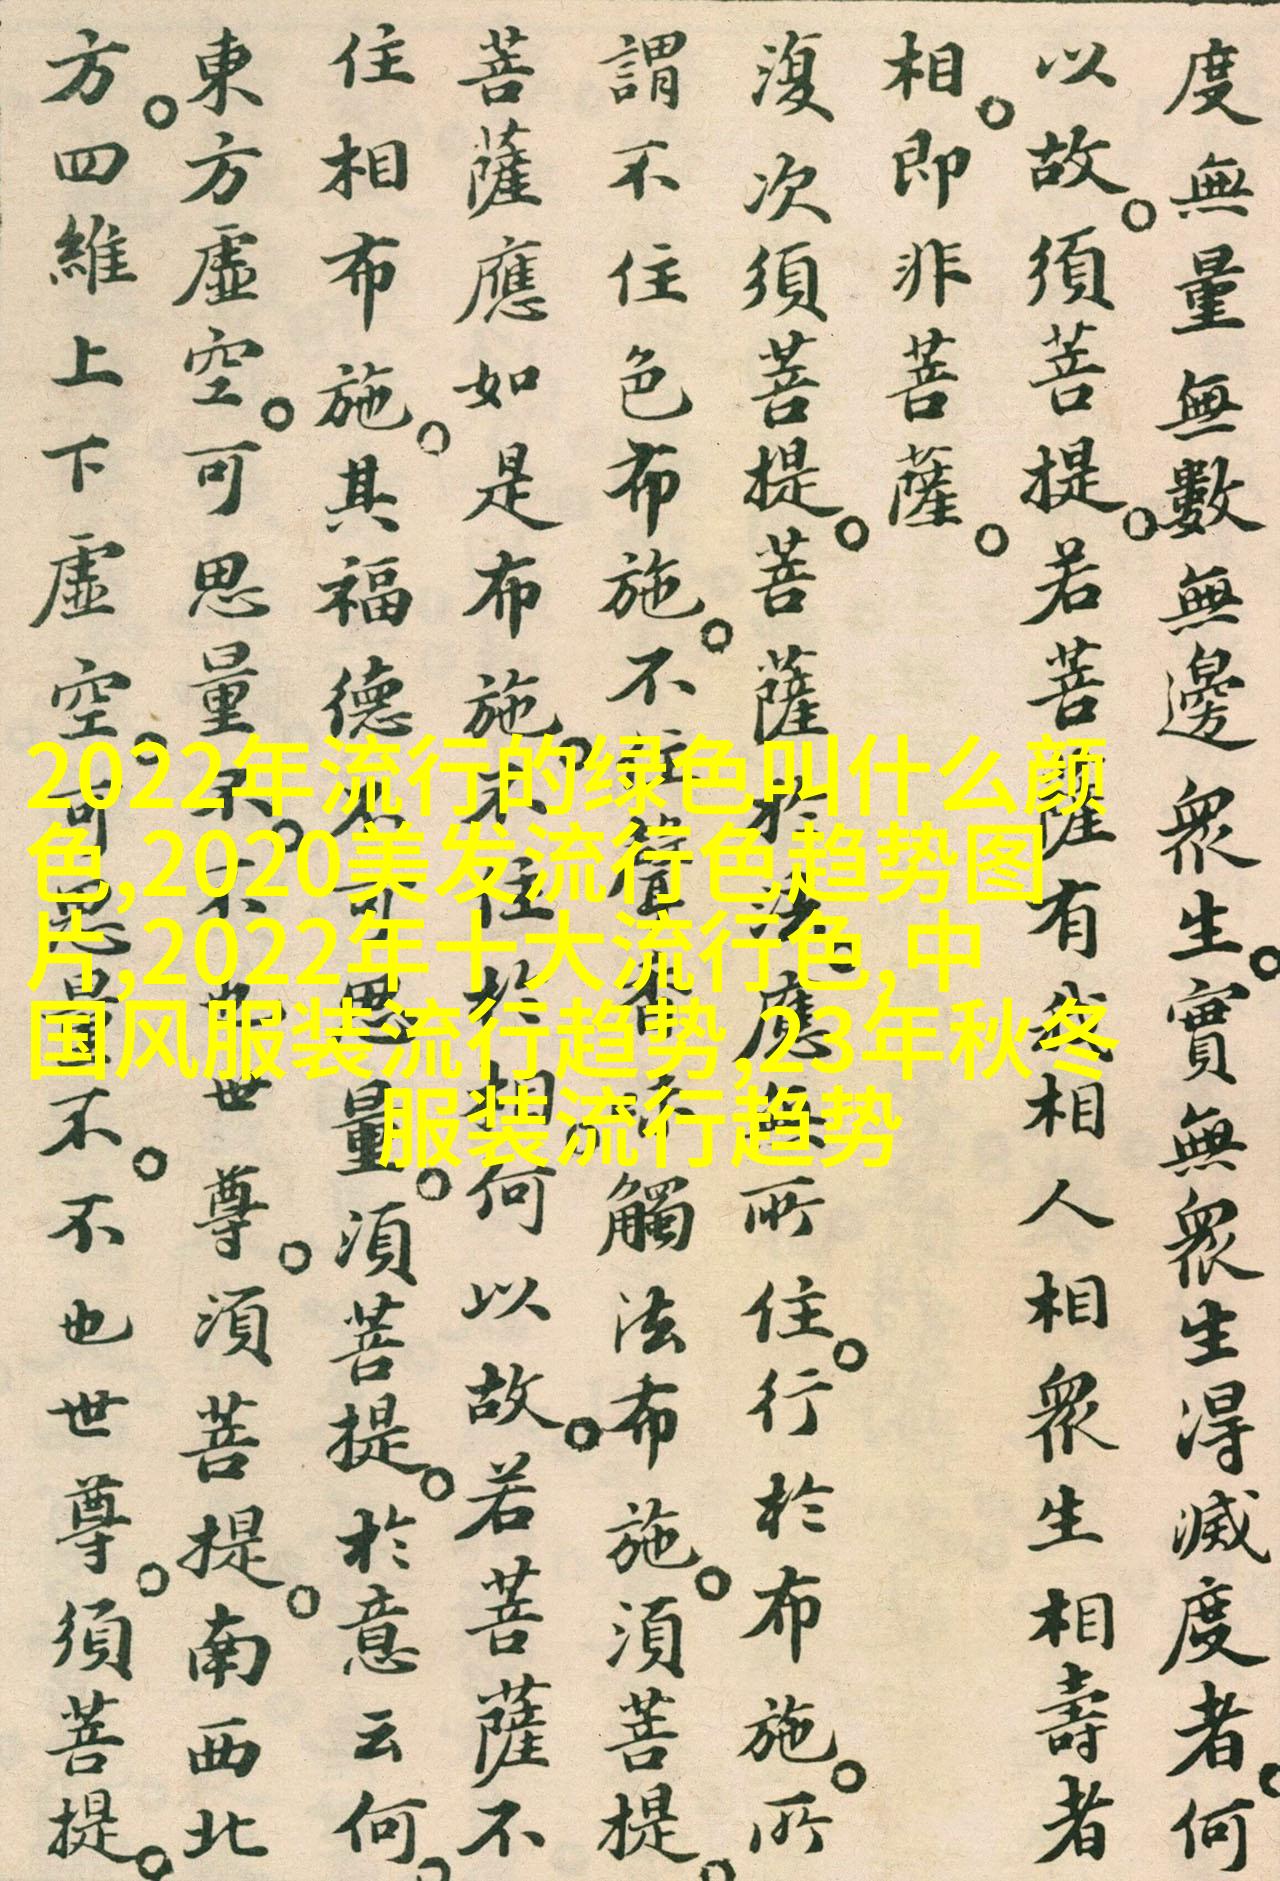 度無量無數無邊眾生。實無眾生得滅度者。何
以故。須菩提。若菩薩有我相人相眾生相壽者
相。即非菩薩。
復次須菩提。菩薩於法。應無所住。行於布施。所
謂不住色布施。不住聲香味觸法布施。須菩提。
菩薩應如是布施。不住於相。何以故。若菩薩不
住相布施。其福德不可思量。須菩提。於意云何。
東方虛空。可思量不。不也世尊。須菩提。南西北
方。四維上下虛空。可思量不。不也世尊。須菩提。
2022年流行的绿色叫什么颜
色,2020美发流行色趋势图
片,2022年十大流行色,中
国风服装流行趋势,23年秋冬
服装流行趋势